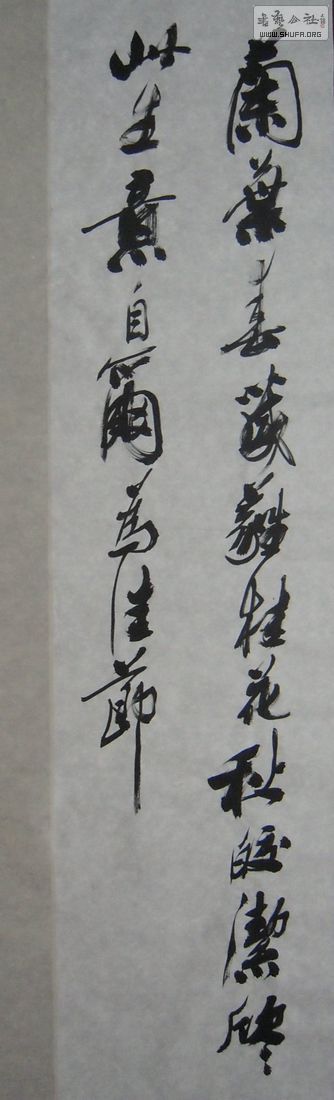 蘭葉春葳蕤桂花秋皎潔欣〻
此生意自爾為佳節
書藝公社
WWW.SHUFA.ORG